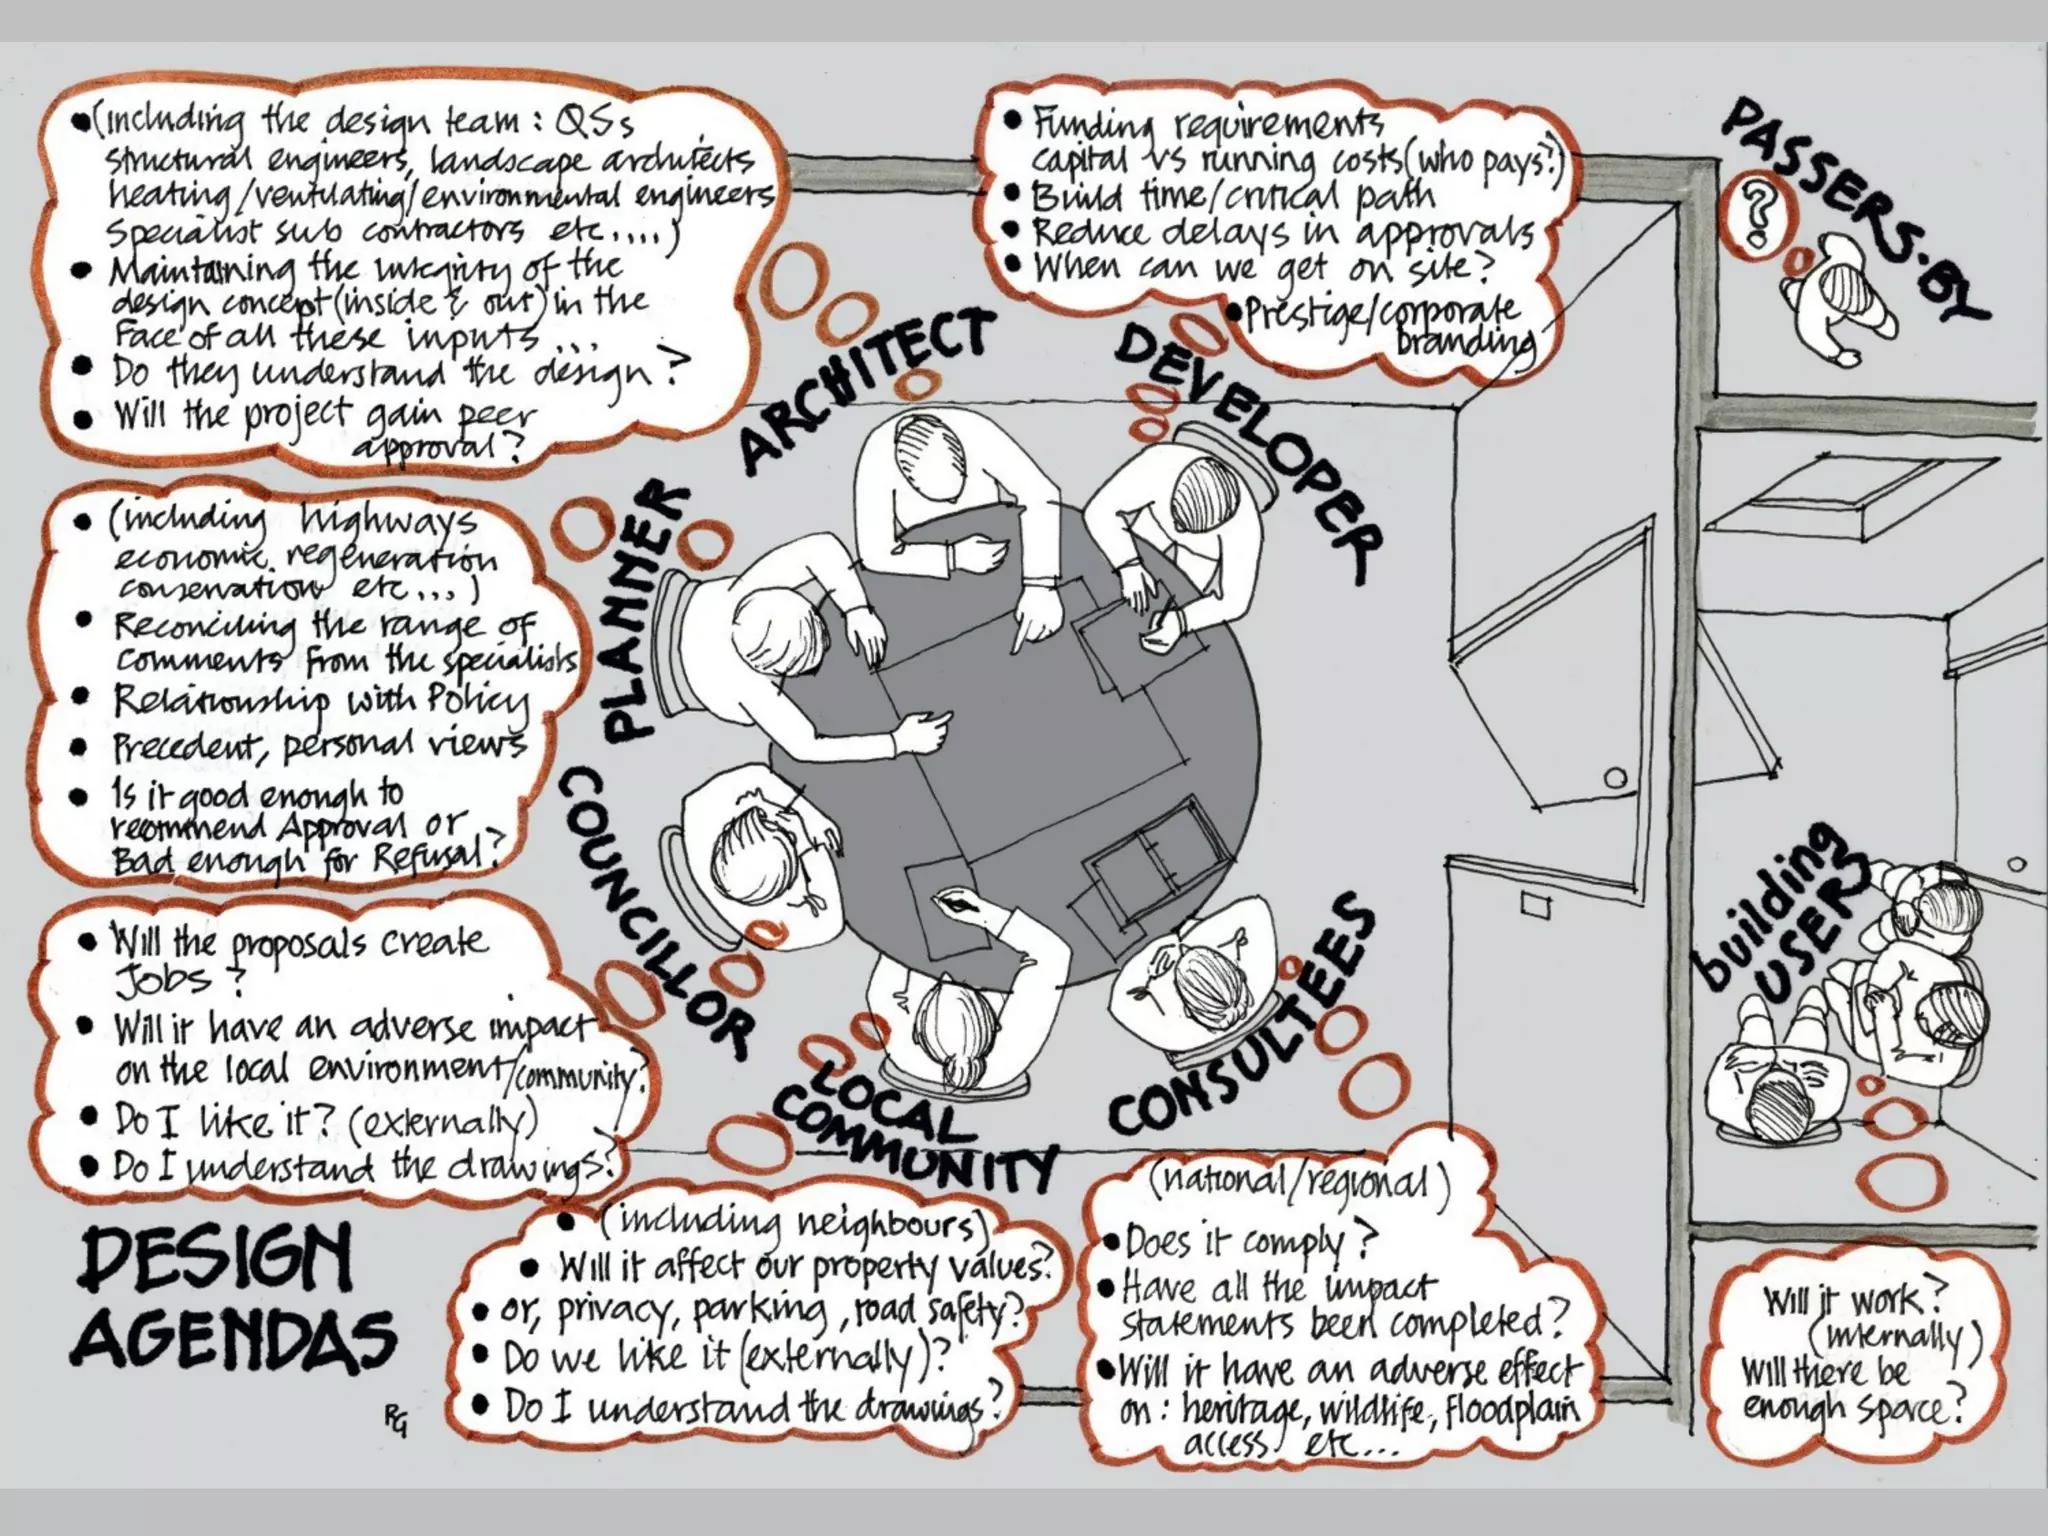 •(including the design team : QSs
structural engineers, landscape architects
heating/ventilating/environmental engineers
Specialist sub contractors etc....)
• Maintaining the integrity of the
design concept (inside & out) in the
face of all these inputs ...
• Do they understand the design?
• Will the project gain peer
approval?
ARCHITECT
• Funding requirements
capital vs running costs (who pays?)
• Build time/critical path
• Reduce delays in approvals
• When can we get on site?
• Prestige/corporate
branding
DEVELOPER
PASSERS-BY
?
• (including highways
economic regeneration
conservation etc...)
• Reconciling the range of
comments from the specialists
• Relationship with Policy
• Precedent, personal views
• Is it good enough to
recommend Approval or
Bad enough for Refusal?
PLANNER
• Will the proposals create
Jobs?
• Will it have an adverse impact
on the local environment/community?
• Do I like it? (externally)
• Do I understand the drawings?
COUNCILLOR
LOCAL
COMMUNITY
• (including neighbours)
• Will it affect our property values?
• or, privacy, parking, road safety?
• Do we like it (externally)?
• Do I understand the drawings?
CONSULTEES
(national/regional)
• Does it comply?
• Have all the impact
statements been completed?
• Will it have an adverse effect
on : heritage, wildlife, floodplain
access etc...
building
USERS
Will it work?
(internally)
Will there be
enough space?
DESIGN
AGENDAS
RG